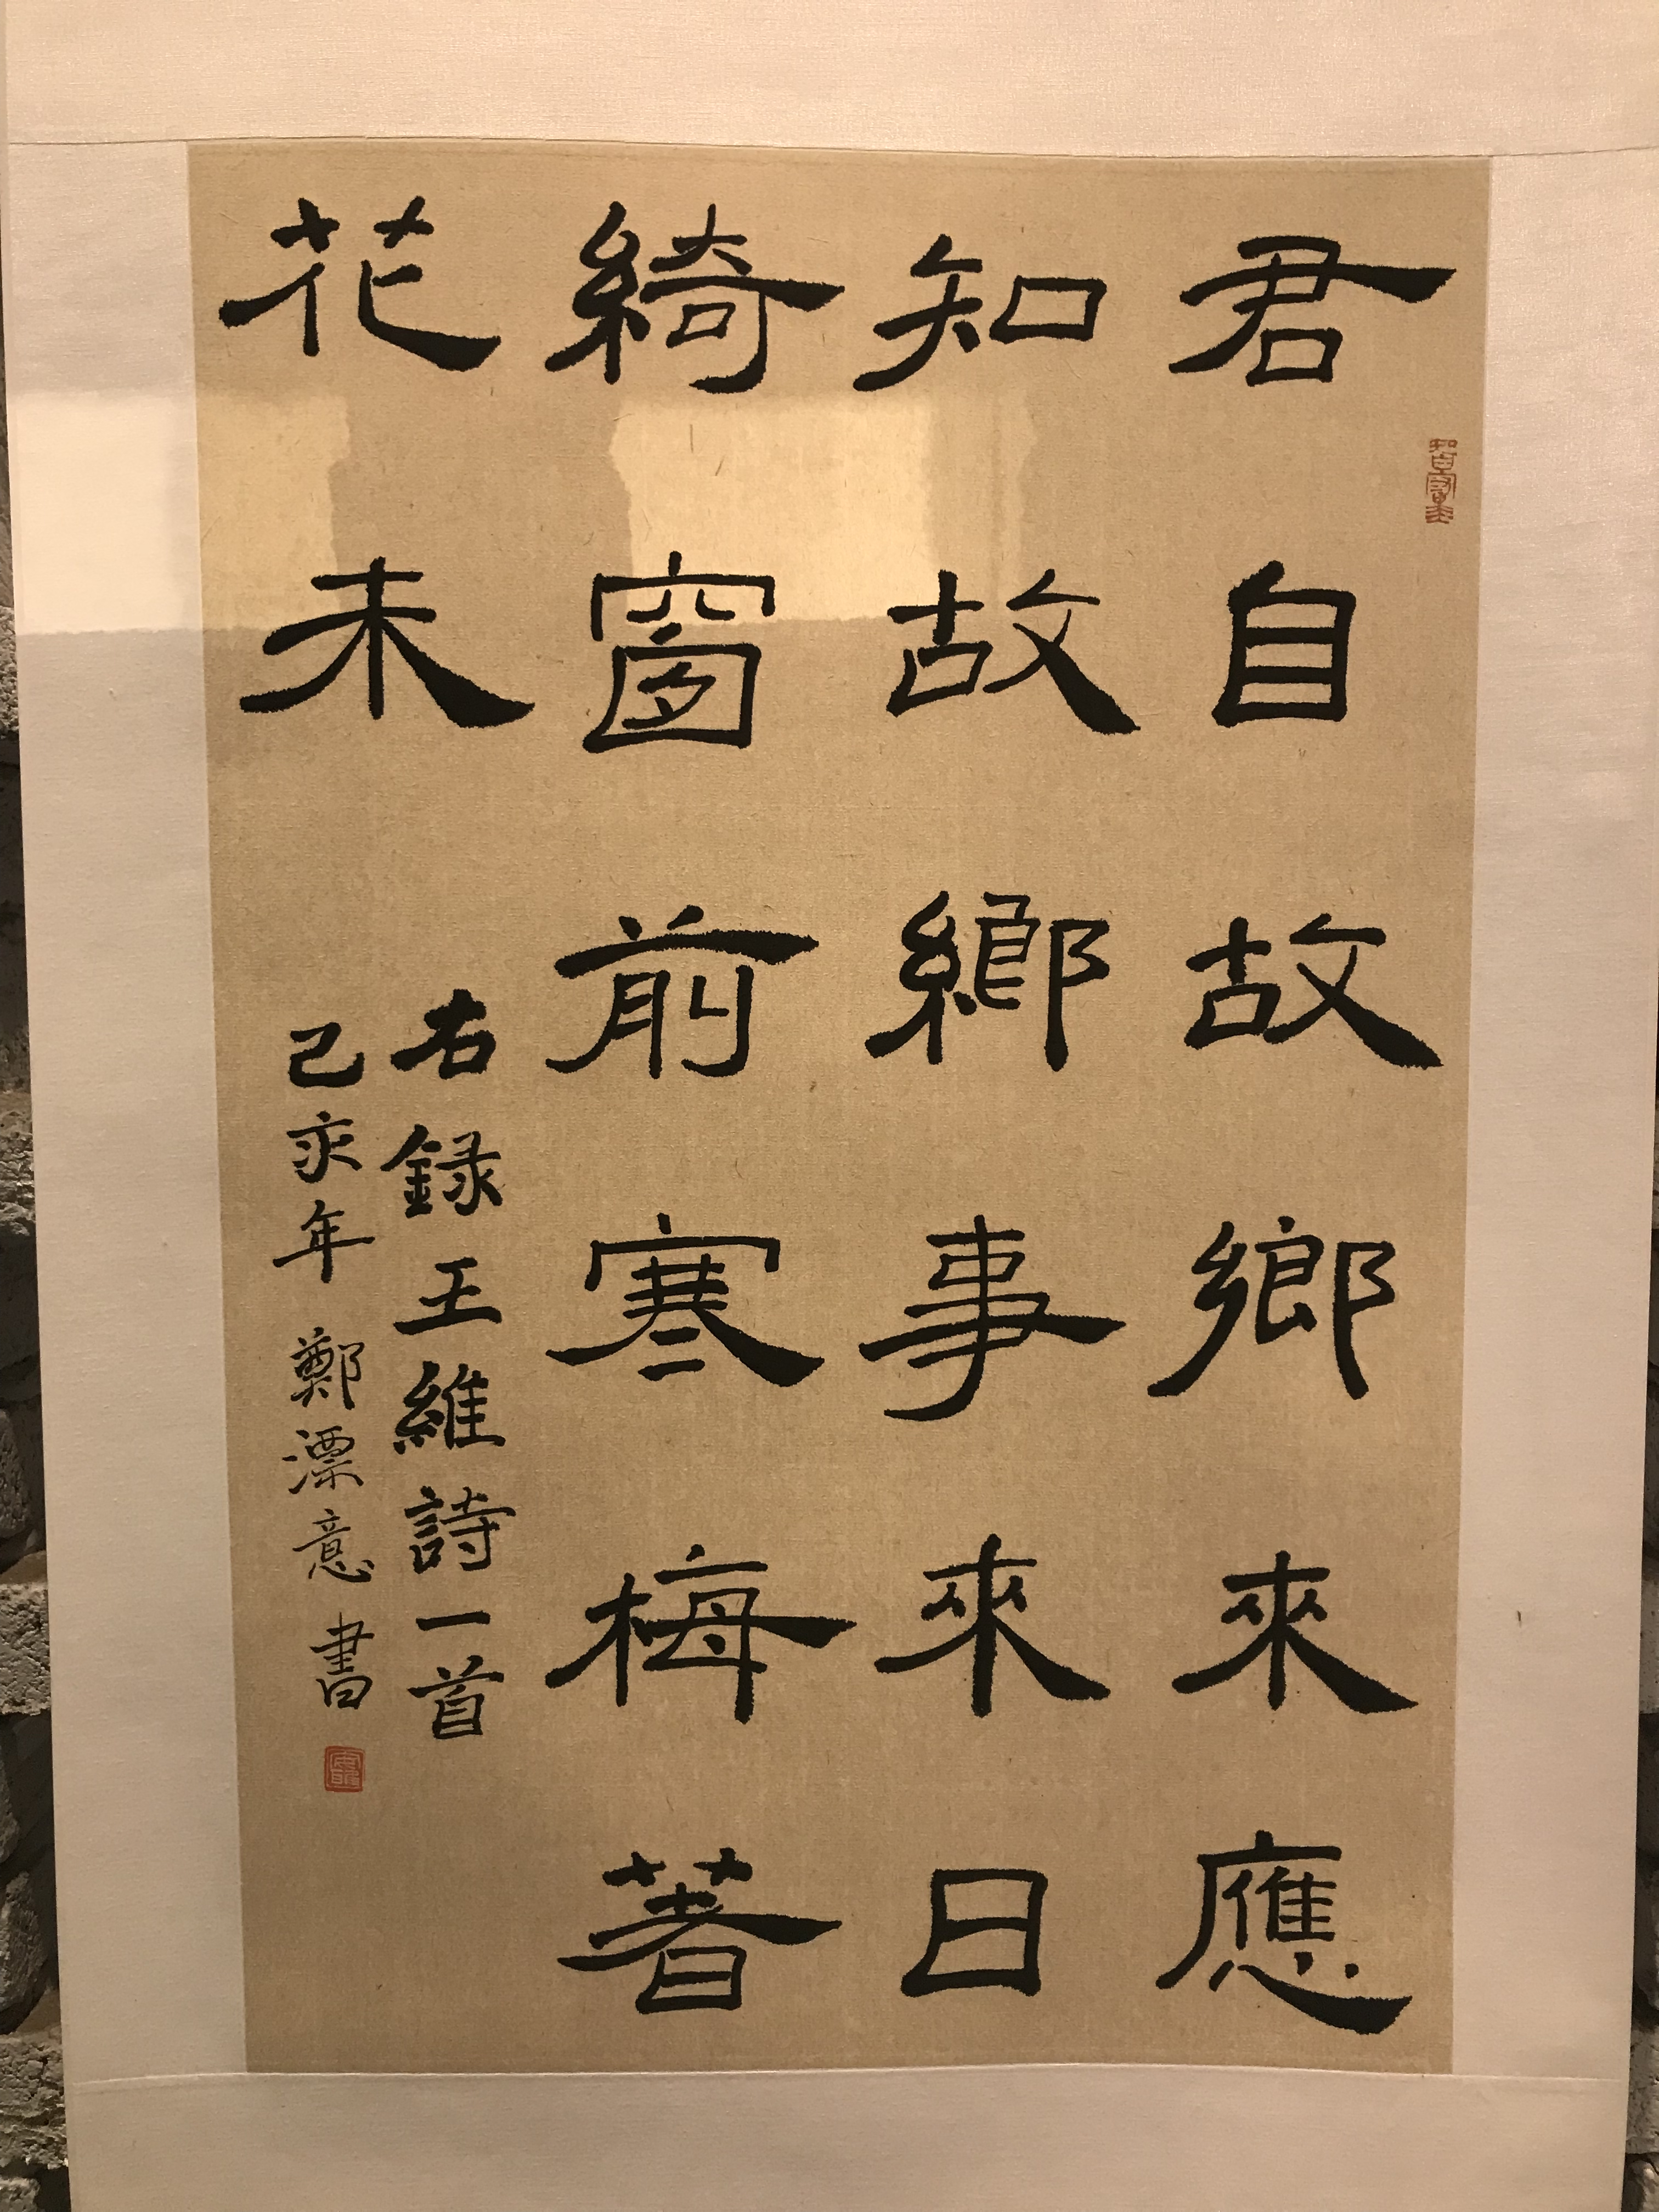 君自故鄉來應
知故鄉事來日
綺窗前寒梅著
花未
右録王維詩一首
己亥年 鄭漂意 書